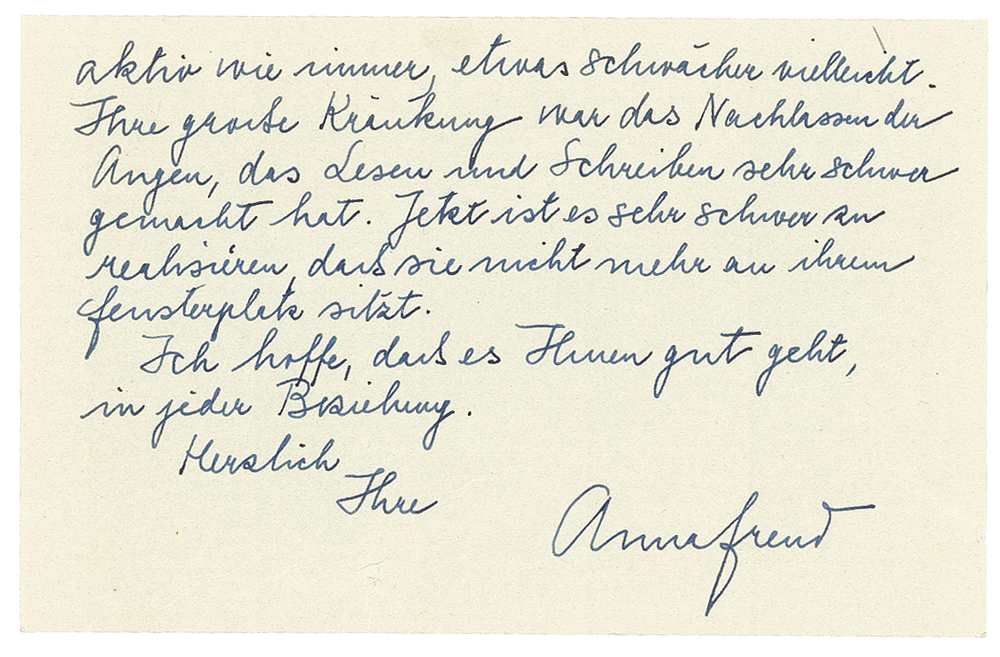 aktiv wie immer, etwas schwächer vielleicht.
Ihre große Kränkung war das Nachlassen der
Augen, das Lesen und Schreiben sehr schwer
gemacht hat. Jetzt ist es sehr schwer zu
realisieren, daß sie nicht mehr an ihrem
Fensterplatz sitzt.
Ich hoffe, daß es Ihnen gut geht,
in jeder Beziehung.
Herzlich
Ihre
Anna Freud